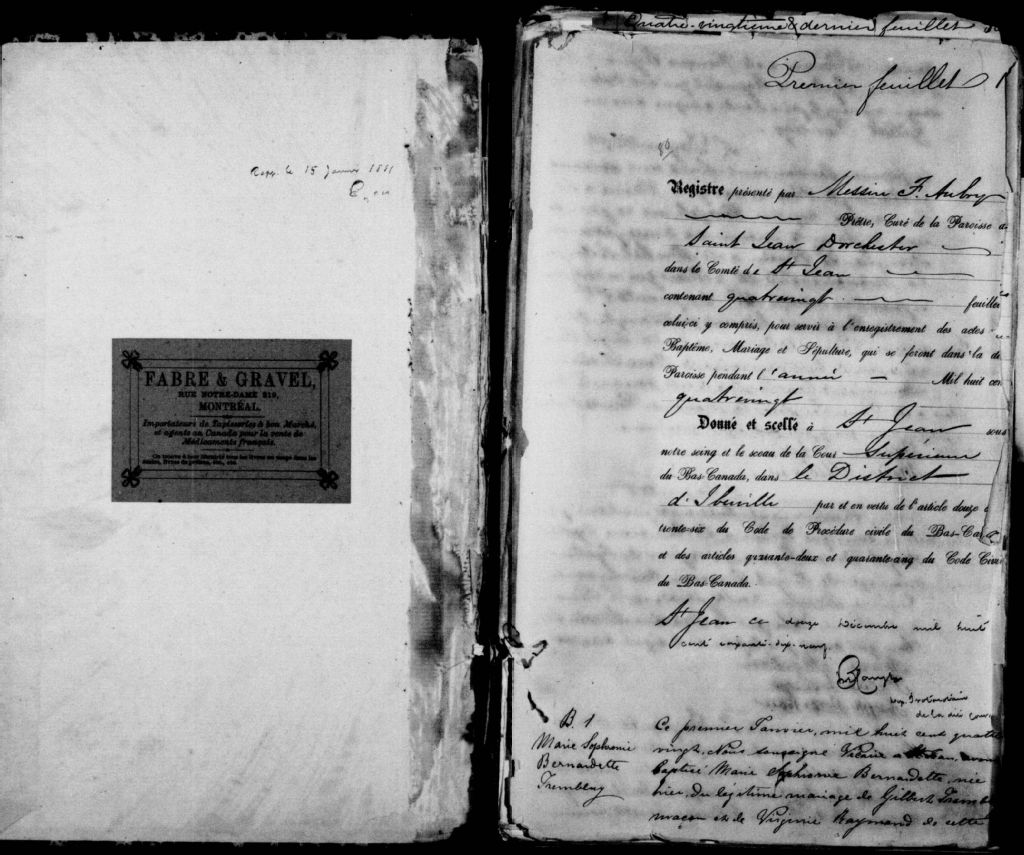 le 15 Janvier 1881
FABRE & GRAVEL,
RUE NOTRE-DAME 219,
MONTRÉAL.
Importateurs de Tapisseries à bon Marché,
et agents au Canada pour la vente de
Médicaments français.
On trouve à leur librairie tous les livres en usage dans les
écoles, livres de prières, etc., etc.
Quatre-vingtième & dernier feuillet
Premier feuillet 1
80
Registre présenté par Messire F. Aubry
Prêtre, Curé de la Paroisse d
Saint Jean Dorchester
dans le Comté de St Jean
contenant quatrevingt feuillets
celui-ci y compris, pour servir à l'enregistrement des actes
Baptême, Mariage et Sépulture, qui se feront dans la di
Paroisse pendant l'année Mil huit cen
quatrevingt
Donné et scellé à St Jean sous
notre seing et le sceau de la Cour Supérieure
du Bas-Canada, dans le District
d'Iberville par et en vertu de l'article douze c
trente-six du Code de Procédure civile du Bas-Ca
et des articles quarante-deux et quarante-cinq du Code Civi
du Bas-Canada.
St Jean ce douze Décembre mil huit
cent soixante-dix-neuf.
Dép. Protonotaire
de la dite Cour
B. 1
Marie Sophronie
Bernardette
Tremblay
Ce premier Janvier, mil huit cent quatre
vingt, Nous soussigné Vicaire avons
baptisé Marie Sophronie Bernardette, née
hier, du légitime mariage de Gilbert Trembl
maçon et de Virginie Raymond de cette